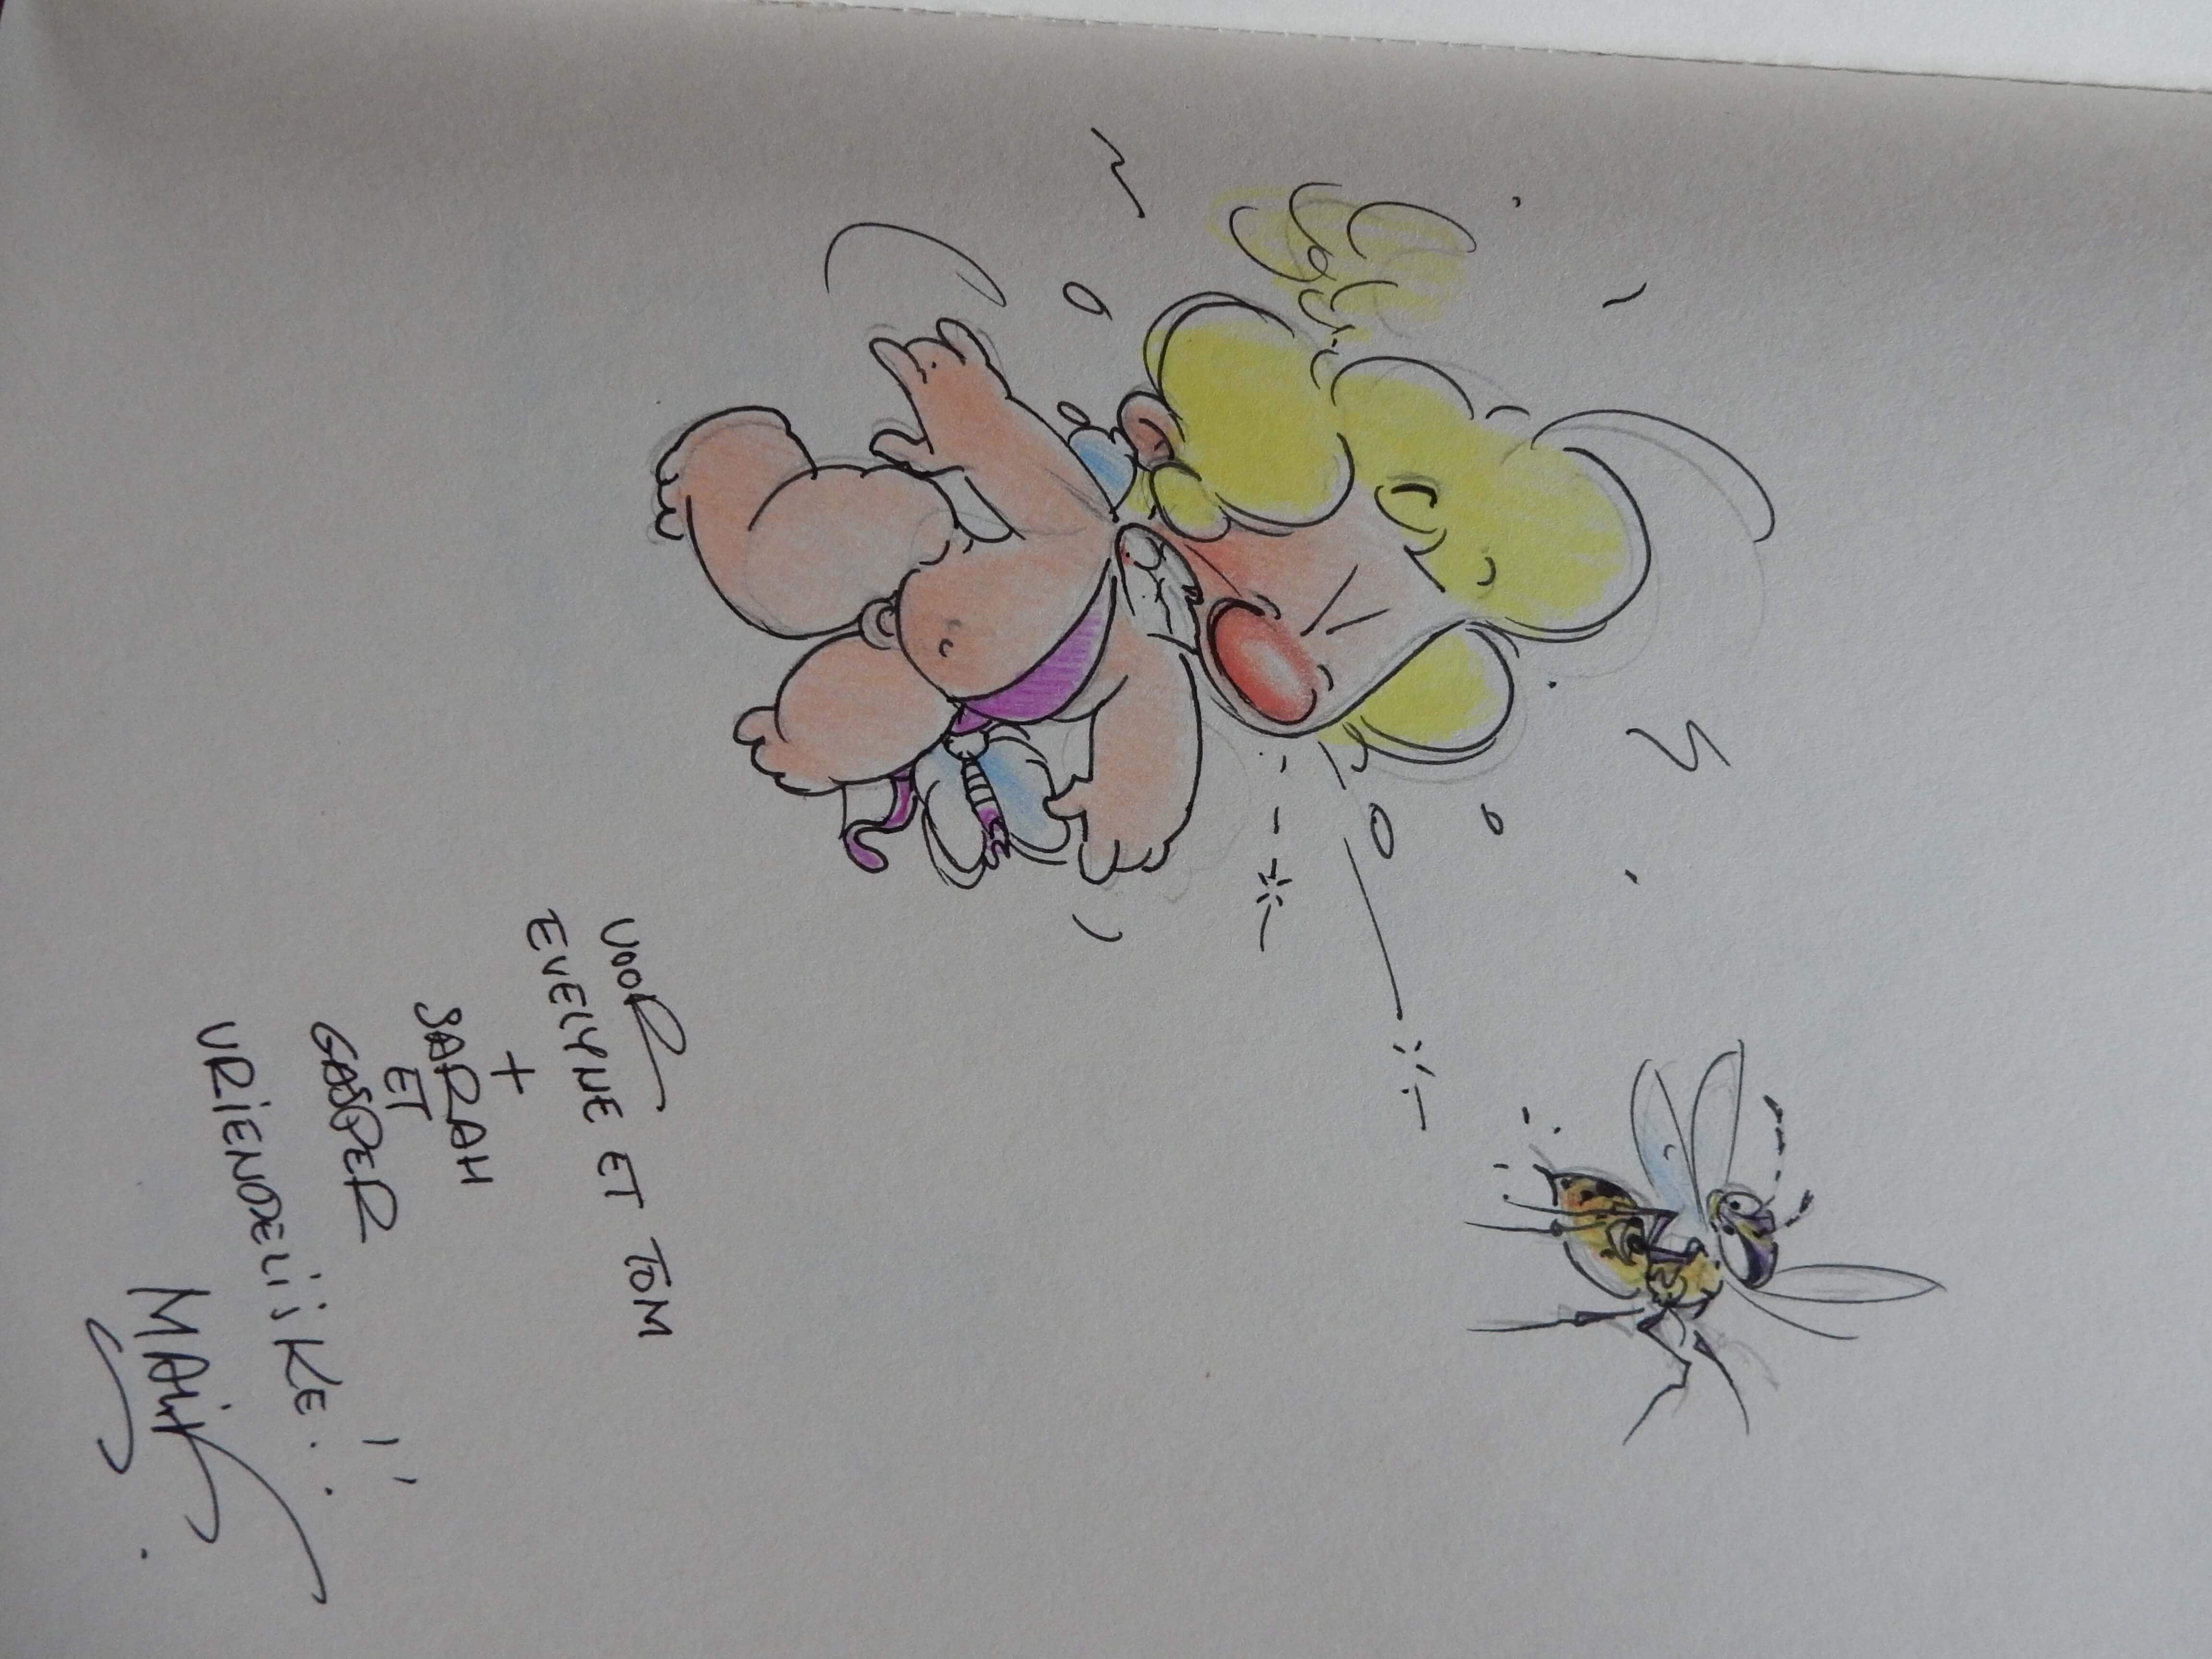 VOOR
EVELYNE ET TOM
+
SARAH
ET
GASPER
VRIENDELIJKE!!
MALIK